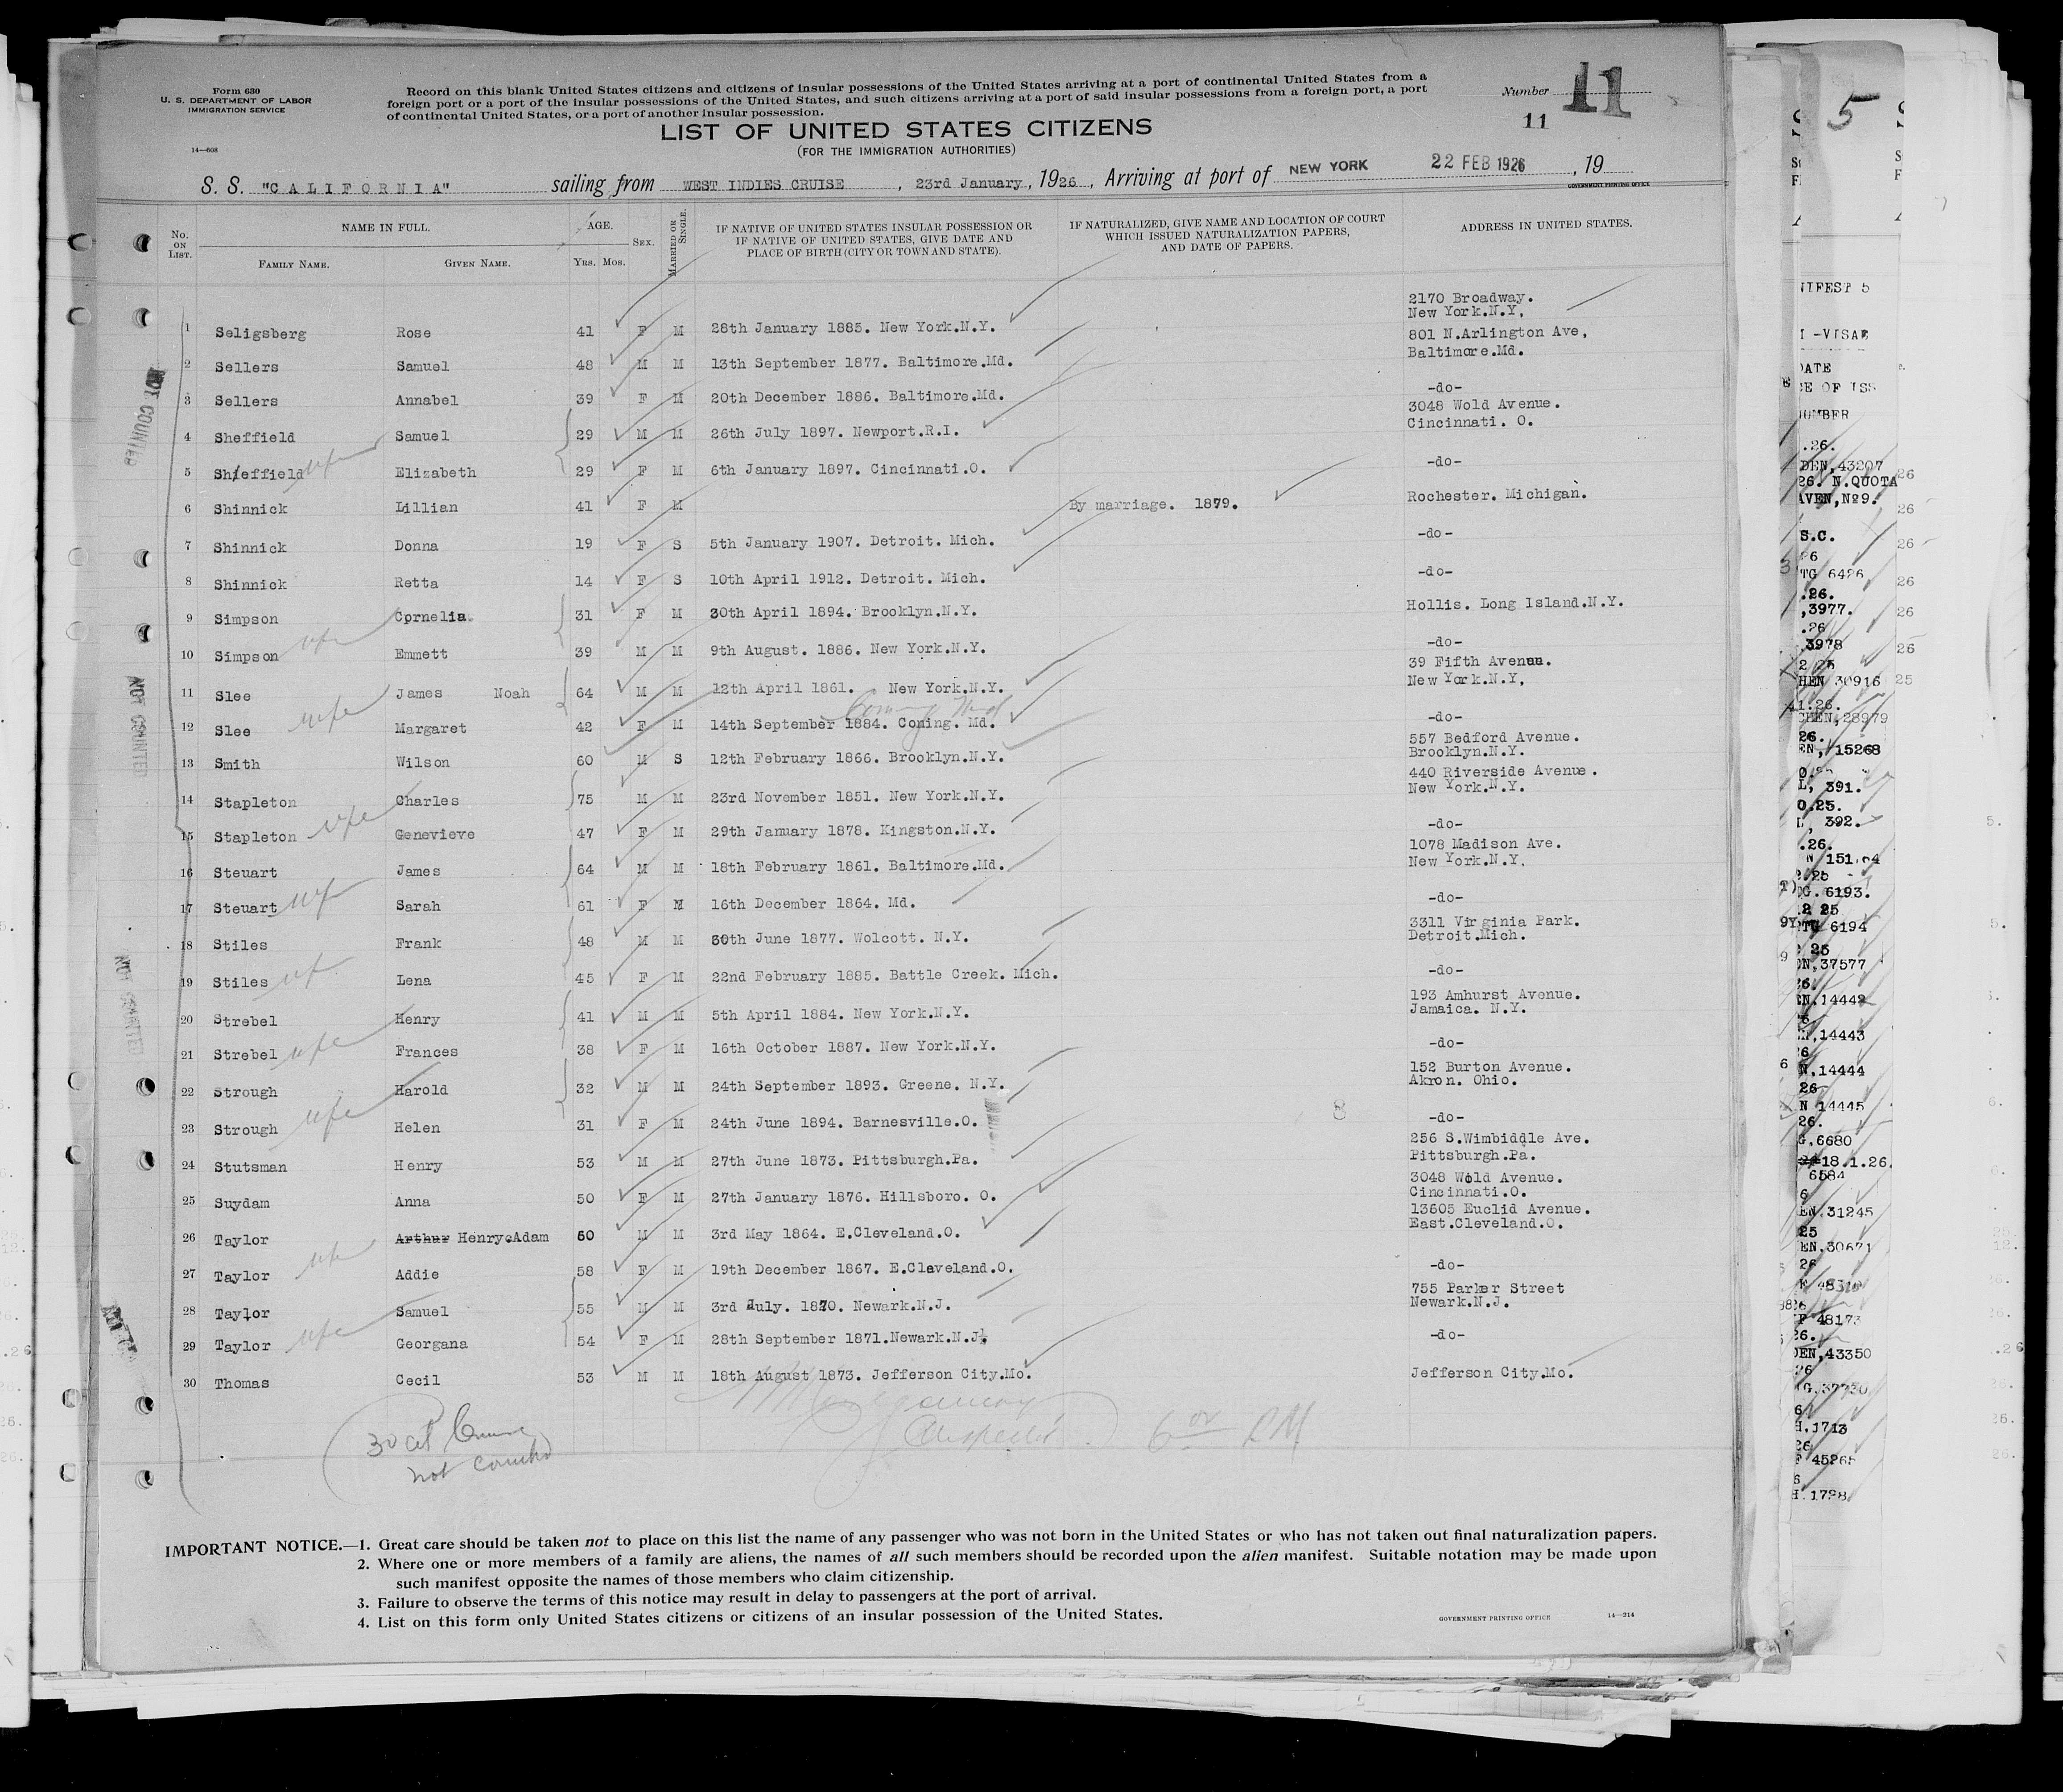 Form 630
U. S. DEPARTMENT OF LABOR
IMMIGRATION SERVICE
14—608
Record on this blank United States citizens and citizens of insular possessions of the United States arriving at a port of continental United States from a
foreign port or a port of the insular possessions of the United States, and such citizens arriving at a port of said insular possessions from a foreign port, a port
of continental United States, or a port of another insular possession.
Number 11
11
LIST OF UNITED STATES CITIZENS
(FOR THE IMMIGRATION AUTHORITIES)
S. S. "CALIFORNIA" sailing from WEST INDIES CRUISE, 23rd January, 1926, Arriving at port of NEW YORK 22 FEB 1926, 19
GOVERNMENT PRINTING OFFICE
No. ON LIST. NAME IN FULL. FAMILY NAME. GIVEN NAME. AGE. YRS. MOS. SEX. MARRIED OR SINGLE. IF NATIVE OF UNITED STATES INSULAR POSSESSION OR IF NATIVE OF UNITED STATES, GIVE DATE AND PLACE OF BIRTH (CITY OR TOWN AND STATE). IF NATURALIZED, GIVE NAME AND LOCATION OF COURT WHICH ISSUED NATURALIZATION PAPERS, AND DATE OF PAPERS. ADDRESS IN UNITED STATES.
1 Seligsberg Rose 41 F M 28th January 1885. New York.N.Y. 2170 Broadway. New York.N.Y,
2 Sellers Samuel 48 M M 13th September 1877. Baltimore.Md. 801 N.Arlington Ave, Baltimore.Md.
3 Sellers Annabel 39 F M 20th December 1886. Baltimore.Md. -do-
4 Sheffield Samuel 29 M M 26th July 1897. Newport.R.I. 3048 Wold Avenue. Cincinnati. O.
5 Sheffield wife Elizabeth 29 F M 6th January 1897. Cincinnati.O. -do-
6 Shinnick Lillian 41 F M By marriage. 1879. Rochester. Michigan.
7 Shinnick Donna 19 F S 5th January 1907. Detroit. Mich. -do-
8 Shinnick Retta 14 F S 10th April 1912. Detroit. Mich. -do-
9 Simpson Cornelia 31 F M 30th April 1894. Brooklyn.N.Y. Hollis. Long Island.N.Y.
10 Simpson wife Emmett 39 M M 9th August. 1886. New York.N.Y. -do-
11 Slee James Noah 64 M M 12th April 1861. New York.N.Y. 39 Fifth Avenue. New York.N.Y,
12 Slee wife Margaret 42 F M 14th September 1884. Coning. Md. -do-
13 Smith Wilson 60 M S 12th February 1866. Brooklyn.N.Y. 557 Bedford Avenue. Brooklyn.N.Y.
14 Stapleton Charles 75 M M 23rd November 1851. New York.N.Y. 440 Riverside Avenue. New York.N.Y.
15 Stapleton wife Genevieve 47 F M 29th January 1878. Kingston.N.Y. -do-
16 Steuart James 64 M M 18th February 1861. Baltimore.Md. 1078 Madison Ave. New York.N.Y.
17 Steuart wf Sarah 61 F M 16th December 1864. Md. -do-
18 Stiles Frank 48 M M 30th June 1877. Wolcott. N.Y. 3311 Virginia Park. Detroit.Mich.
19 Stiles wf Lena 45 F M 22nd February 1885. Battle Creek. Mich. -do-
20 Strebel Henry 41 M M 5th April 1884. New York.N.Y. 193 Amhurst Avenue. Jamaica. N.Y.
21 Strebel wife Frances 38 F M 16th October 1887. New York.N.Y. -do-
22 Strough Harold 32 M M 24th September 1893. Greene. N.Y. 152 Burton Avenue. Akron. Ohio.
23 Strough wife Helen 31 F M 24th June 1894. Barnesville.O. 8 -do-
24 Stutsman Henry 53 M M 27th June 1873. Pittsburgh.Pa. 256 S.Wimbiddle Ave. Pittsburgh.Pa.
25 Suydam Anna 50 F M 27th January 1876. Hillsboro. O. 3048 Wold Avenue. Cincinnati.O.
26 Taylor Arthur Henry Adam 60 M M 3rd May 1864. E.Cleveland.O. 13605 Euclid Avenue. East.Cleveland.O.
27 Taylor wife Addie 58 F M 19th December 1867. E.Cleveland.O. -do-
28 Taylor Samuel 55 M M 3rd July. 1870. Newark.N.J. 755 Parker Street Newark.N.J.
29 Taylor wife Georgana 54 F M 28th September 1871.Newark.N.J. -do-
30 Thomas Cecil 53 M M 18th August 1873. Jefferson City.Mo. Jefferson City.Mo.
NOT COUNTED
NOT COUNTED
NOT COUNTED
30 cit Cruise
not counted
Inspector
6 PM
IMPORTANT NOTICE.—1. Great care should be taken not to place on this list the name of any passenger who was not born in the United States or who has not taken out final naturalization papers.
2. Where one or more members of a family are aliens, the names of all such members should be recorded upon the alien manifest. Suitable notation may be made upon
such manifest opposite the names of those members who claim citizenship.
3. Failure to observe the terms of this notice may result in delay to passengers at the port of arrival.
4. List on this form only United States citizens or citizens of an insular possession of the United States.
GOVERNMENT PRINTING OFFICE 14—214
5